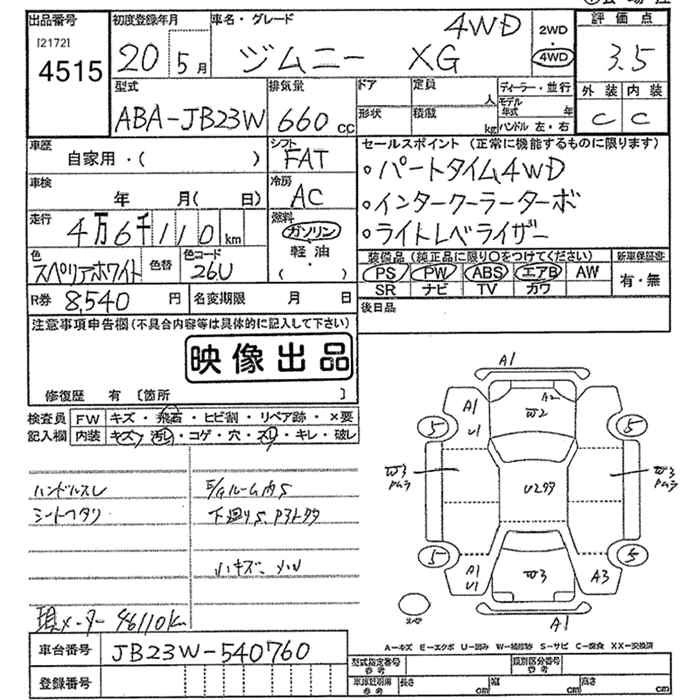 出品番号
[2172]
4515
初度登録年月 車名・グレード 4WD
20 5月 ジムニー XG
2WD
4WD
評価点
3.5
外装 内装
C C
型式 排気量 ドア 定員 人 ディーラー・並行
ABA-JB23W 660cc 形状 積載 kg モデル年式 年
ハンドル 左・右
車歴 自家用・( )
シフト FAT
車検 年 月( 日)
冷房 AC
走行 4万6千110km
燃料 ガソリン
軽油
・( )
色 スペリアホワイト 色替 色コード 26U
R券 8,540円 名変期限 月 日
セールスポイント (正常に機能するものに限ります)
・パートタイム4WD
・インタークーラーターボ
・ライトレベライザー
装備品 (純正品に限り○をつけてください) 新車保証書
PS PW ABS エアB AW 有・無
SR ナビ TV カワ
後日品
注意事項申告欄(不具合内容等は具体的に記入して下さい)
映像出品
修復歴 有 [箇所 ]
検査員 FW キズ・飛石・ヒビ割・リペア跡・×要
記入欄 内装 キズ・汚レ・コゲ・穴・スレ・キレ・破レ
ハンドルスレ
シートヘタリ
下廻りS
現メーター 46110km
A1
A1
U1
A2
W2
5 5
W3
U2
W3
5 5
A1
U1
W3
A3
A1
A=キズ E=エクボ U=凹み W=補修跡 S=サビ C=腐食 XX=交換済
車台番号 JB23W-540760
登録番号
型式指定番号 参考 類別区分番号 参考
車庫証明用 参考 長さ cm 幅 cm 高さ cm